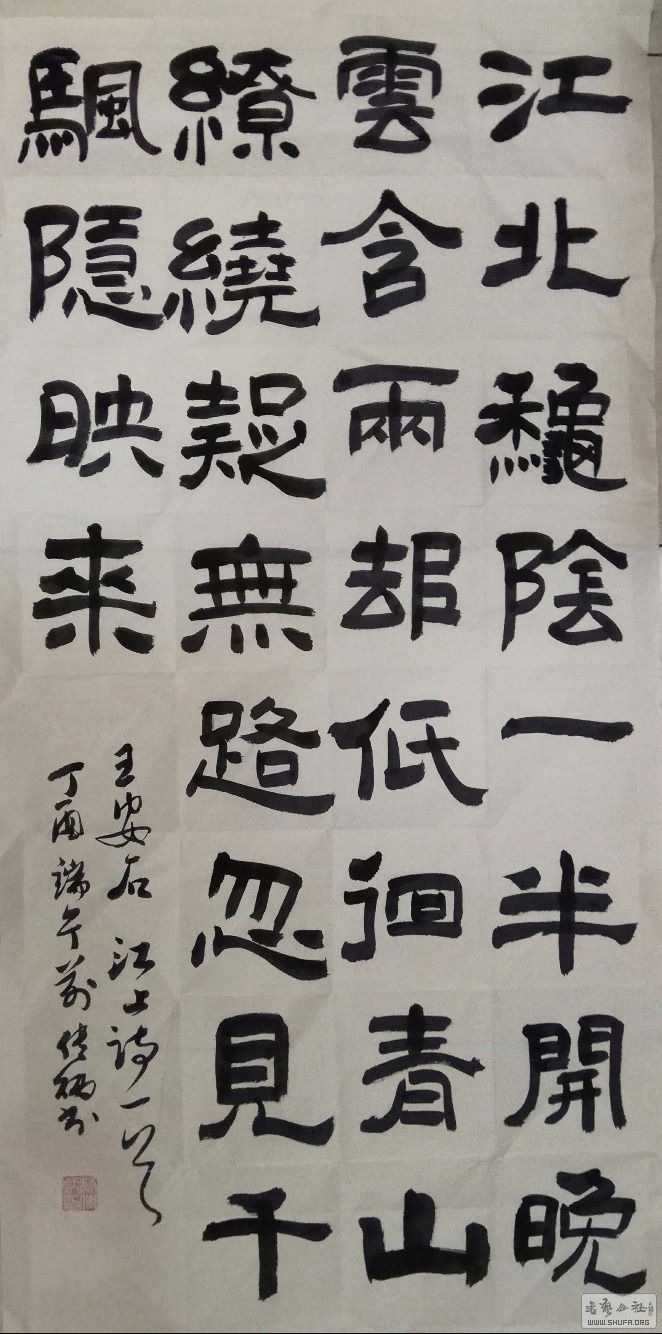 江北龝陰一半開晚
雲含雨却低徊青山
繚繞疑無路忽見千
颿隱映来
王安石江上詩一首
丁酉端午前
書藝公社
WWW.SHUFA.ORG